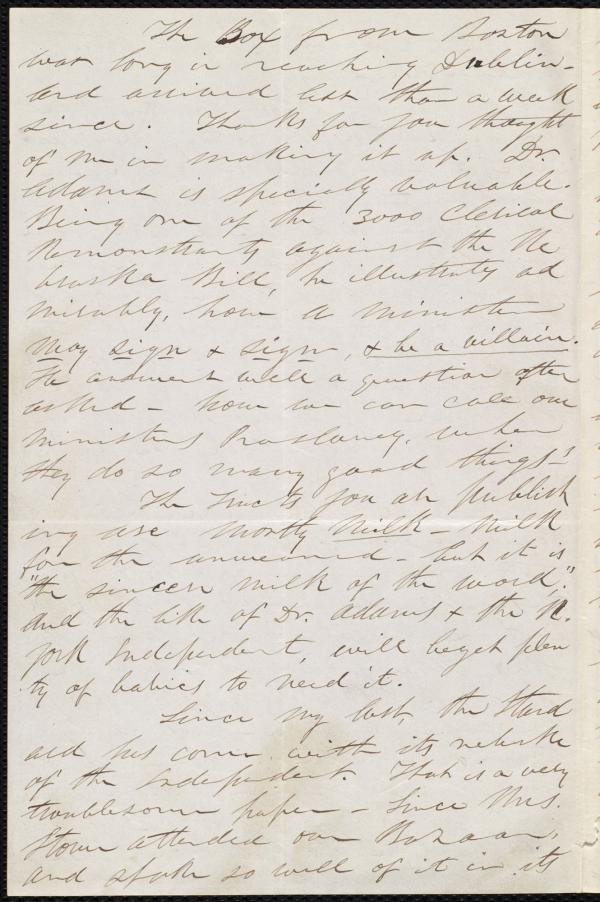 The Box from Boston
was long in reaching Dublin -
and arrived less than a week
since. Thanks for your thought
of me in making it up. Dr.
Adams is specially valuable.
Being one of the 3000 Clerical
Remonstrants against the Ne
braska Bill, he illustrates ad
mirably, how a minister
may sign & sign, & be a villain.
He answers well a question often
asked - how we can call our
ministers Proslavery, when
they do so many good things?
The Tracts you are publish
ing are mostly Milk - milk
for the unweaned - but it is
"the sincere milk of the word,"
and the like of Dr. Adams & the N.
York Independent, will beget plen
ty of babies to need it.
Since my last, the Stand
ard has come with its rebuke
of the Independent. That is a very
troublesome paper - Since Mrs.
Stowe attended our Bazaar,
and spoke so well of it in its